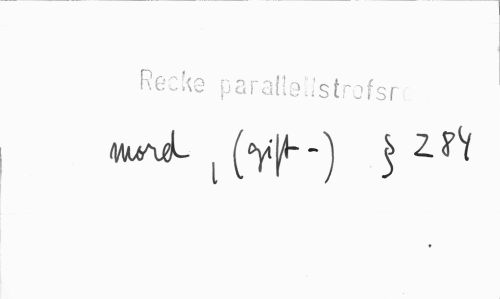 Recke parallellstrofsre
mord, (gift-) § 284